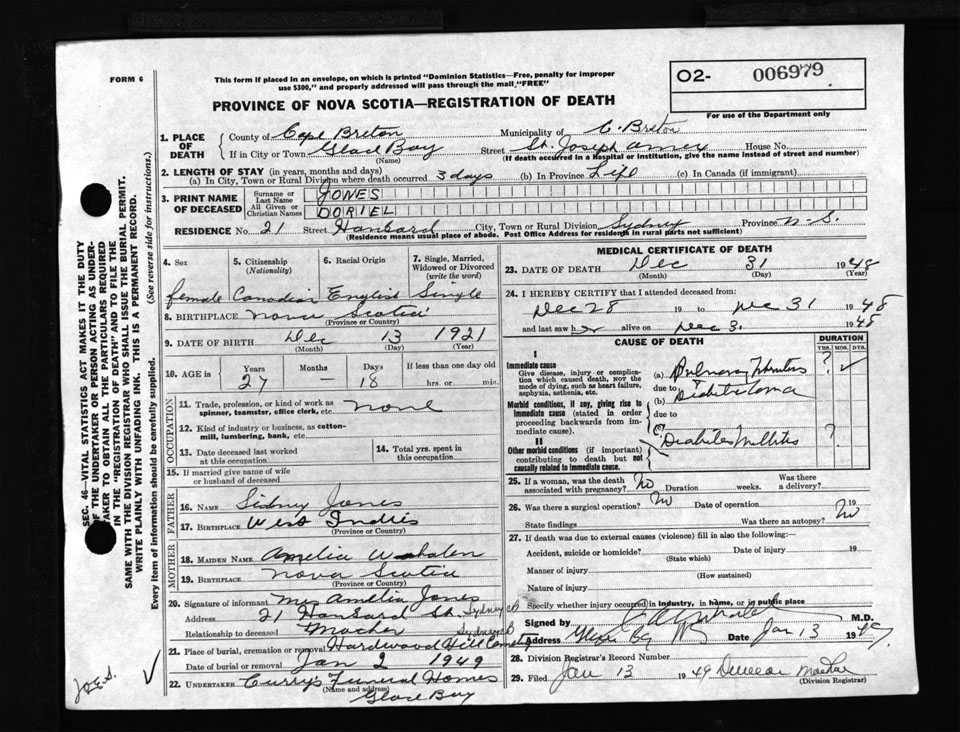 FORM 6
This form if placed in an envelope, on which is printed "Dominion Statistics—Free, penalty for improper
use $300," and properly addressed will pass through the mail "FREE"
O2- 006979
For use of the Department only
PROVINCE OF NOVA SCOTIA—REGISTRATION OF DEATH
SEC. 46—VITAL STATISTICS ACT MAKES IT THE DUTY
OF THE UNDERTAKER OR PERSON ACTING AS UNDER-
TAKER TO OBTAIN ALL THE PARTICULARS REQUIRED
IN THE "REGISTRATION OF DEATH" AND TO FILE THE
SAME WITH THE DIVISION REGISTRAR WHO SHALL ISSUE THE BURIAL PERMIT.
WRITE PLAINLY WITH UNFADING INK. THIS IS A PERMANENT RECORD.
Every item of information should be carefully supplied. (See reverse side for instructions.)
1. PLACE OF DEATH
County of Cape Breton Municipality of C. Breton
If in City or Town Glace Bay Street St. Joseph annex House No.
(Name) (If death occurred in a Hospital or institution, give the name instead of street and number)
2. LENGTH OF STAY (in years, months and days)
(a) In City, Town or Rural Division where death occurred 3 days (b) In Province Life (c) In Canada (if immigrant)
3. PRINT NAME OF DECEASED
Surname or Last Name JONES
All Given or Christian Names DORIEL
RESIDENCE No. 21 Street Hansard City, Town or Rural Division Sydney Province N-S.
(Residence means usual place of abode. Post Office Address for residents in rural parts not sufficient)
4. Sex 5. Citizenship (Nationality) 6. Racial Origin 7. Single, Married, Widowed or Divorced (write the word)
female Canadian English Single
8. BIRTHPLACE Nova Scotia
(Province or Country)
9. DATE OF BIRTH Dec 13 1921
(Month) (Day) (Year)
10. AGE in Years Months Days If less than one day old
27 — 18 hrs. or min.
OCCUPATION
11. Trade, profession, or kind of work as
spinner, teamster, office clerk, etc. none
12. Kind of industry or business, as cotton-
mill, lumbering, bank, etc.
13. Date deceased last worked
at this occupation
14. Total yrs. spent in
this occupation
15. If married give name of wife
or husband of deceased
FATHER
16. NAME Sidney Jones
17. BIRTHPLACE West Indies
(Province or Country)
MOTHER
18. MAIDEN NAME Amelia Whalen
19. BIRTHPLACE Nova Scotia
(Province or Country)
20. Signature of informant Mrs Amelia Jones
Address 21 Hansard St. Sydney CB
Relationship to deceased Mother Sydney CB
21. Place of burial, cremation or removal Hardwood Hill Cemetry
Date of burial or removal Jan 2 1949
22. UNDERTAKER Curry's Funeral Homes
(Name and address)
Glace Bay
MEDICAL CERTIFICATE OF DEATH
23. DATE OF DEATH Dec 31 1948
(Month) (Day) (Year)
24. I HEREBY CERTIFY that I attended deceased from:
Dec 28 19 to Dec 31 1948
and last saw her alive on Dec 31 1948
CAUSE OF DEATH DURATION
YRS. MOS. DYS.
I
Immediate cause
Give disease, injury or complica-
tion which caused death, nor the
mode of dying, such as heart failure,
asphyxia, asthenia, etc.
(a) ?
due to
Morbid conditions, if any, giving rise to
immediate cause (stated in order
proceeding backwards from im-
mediate cause).
(b)
due to
(c)
II
Other morbid conditions (if important)
contributing to death but not
causally related to immediate cause.
Diabetes Mellitus ?
25. If a woman, was the death
associated with pregnancy? no Duration weeks. Was there
a delivery?
26. Was there a surgical operation? no Date of operation 19
State findings Was there an autopsy? no
27. If death was due to external causes (violence) fill in also the following:—
Accident, suicide or homicide? Date of injury 19
(State which)
Manner of injury
(How sustained)
Nature of injury
Specify whether injury occurred in industry, in home, or in public place
Signed by M.D.
Address Date Jan 13 1949
28. Division Registrar's Record Number
29. Filed Jan 13 1949
(Division Registrar)